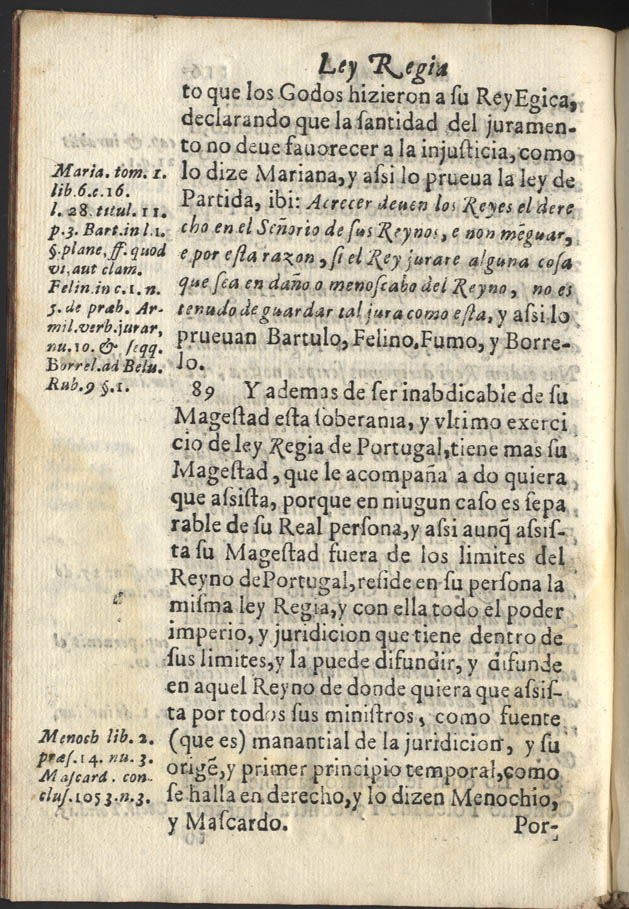 Ley Regia
to que los Godos hizieron a ſu Rey Egica,
declarando que la ſantidad del juramen-
to no deue fauorecer a la injuſticia, como
lo dize Mariana, y aſsi lo prueua la ley de
Partida, ibi: Acrecer deuen los Reyes el dere
cho en el Señorio de ſus Reynos, e non mẽguar,
e por eſta razon, ſi el Rey jurare alguna coſa
que ſea en daño o menoſcabo del Reyno, no es
tenudo de guardar tal jura como eſta, y aſsi lo
prueuan Bartulo, Felino. Fumo, y Borre-
lo.
Maria. tom. 1.
lib. 6. c. 16.
l. 28. titul. 11.
p. 3. Bart. in l. 1.
§. plane, ff. quod
vi, aut clam.
Felin. in c. 1. n.
3. de præb. Ar-
mil. verb. jurar,
nu. 10. & ſeqq.
Borrel. ad Belu.
Rub. 9 §. 1.
89 Y ademas de ſer inabdicable de ſu
Mageſtad eſta ſoberania, y vltimo exerci
cio de ley Regia de Portugal, tiene mas ſu
Mageſtad, que le acompaña a do quiera
que aſsiſta, porque en niugun caſo es ſepa
rable de ſu Real perſona, y aſsi aunq̃ aſsiſ-
ta ſu Mageſtad fuera de los limites del
Reyno de Portugal, reſide en ſu perſona la
miſma ley Regia, y con ella todo el poder
imperio, y juridicion que tiene dentro de
ſus limites, y la puede difundir, y difunde
en aquel Reyno de donde quiera que aſsiſ-
ta por todos ſus miniſtros, como fuente
(que es) manantial de la juridicion, y ſu
origẽ, y primer principio temporal, como
ſe halla en derecho, y lo dizen Menochio,
y Maſcardo.
Menoch lib. 2.
præſ. 14. nu. 3.
Maſcard. con-
cluſ. 1053. n. 3.
Por-